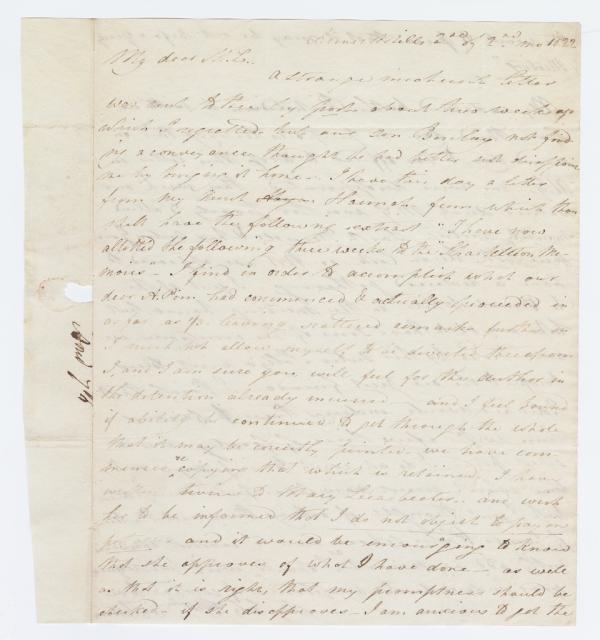 2nd of 2nd mo 1822
My dear
A strange incoherent letter
was sent to thee by post about two weeks ago
which I regretted, but our son Barclay not find
ing a conveyance thought he had better not disappoint
me by bringing it home. I have this day a letter
from my Aunt Hannah from which thou
shalt have the following extract "I have now
allotted the following three weeks to the "Shackleton Me-
moirs" - I find in order to accomplish what our
dear A. Pim had commenced & actually proceeded in
as far as leaving scattered remarks further on
I must not allow myself to be diverted therefrom
I and I am sure you will feel for the Author in
the detention already incurred - and I feel bound
if ability be continued to get through the whole
that it may be correctly printed. we have com-
menced recopying that which is retained. I have
written twice to Mary Leadbeater. and wish
her to be informed that I do not object to pay on
and it would be encouraging to know
that she approves of what I have done - as well
as that it is right, that my promptness should be
checked - if she disapproves - I am anxious to get the